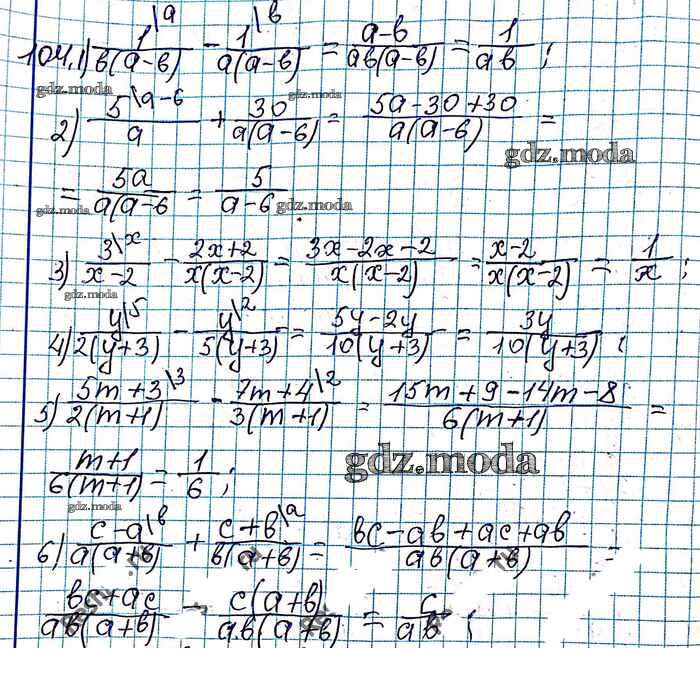 104.1) 1\a / b(a-b) - 1\b / a(a-b) = a-b / ab(a-b) = 1 / ab ;
gdz.moda gdz.moda
2) 5\a-6 / a + 30 / a(a-6) = 5a-30+30 / a(a-6) =
gdz.moda
= 5a / a(a-6 = 5 / a-6 .
gdz.moda gdz.moda
3) 3\x / x-2 - 2x+2 / x(x-2) = 3x-2x-2 / x(x-2) = x-2 / x(x-2) = 1 / x ;
gdz.moda
4) y\5 / 2(y+3) - y\2 / 5(y+3) = 5y-2y / 10(y+3) = 3y / 10(y+3) ;
5) 5m+3\3 / 2(m+1) - 7m+4\2 / 3(m+1) = 15m+9-14m-8 / 6(m+1) =
m+1 / 6(m+1) = 1 / 6 ;
gdz.moda
gdz.moda
6) c-a\b / a(a+b) + c+b\a / b(a+b) = bc-ab+ac+ab / ab(a+b) =
bc+ac / ab(a+b) - c(a+b) / ab(a+b) = c / ab ;